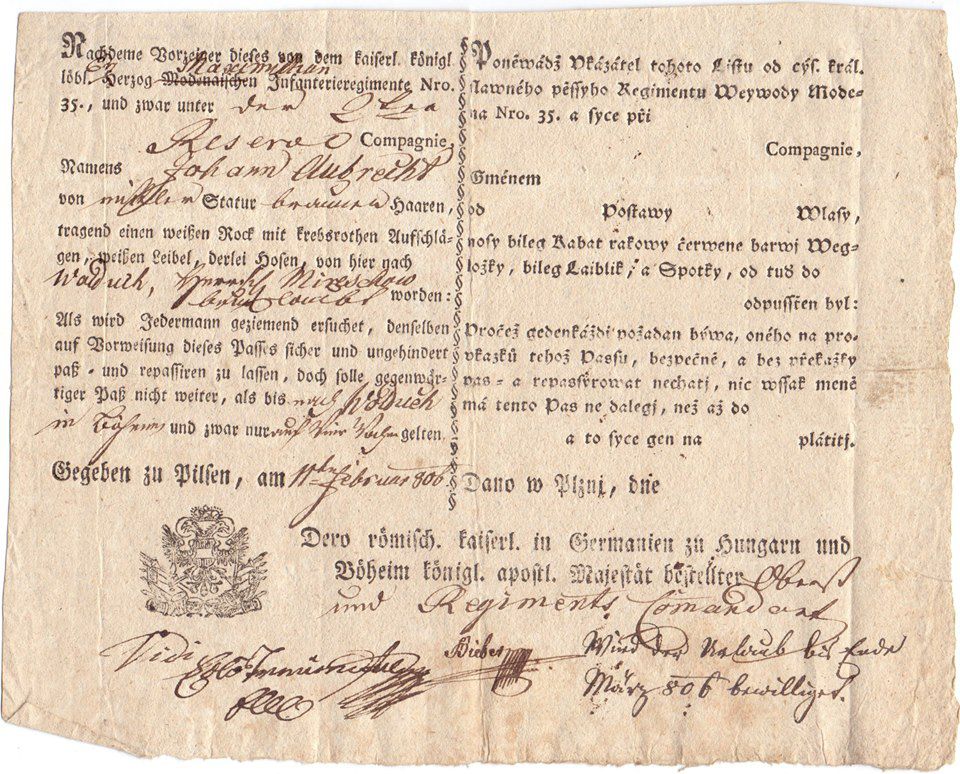 Nachdeme Vorzeiger dieses von dem kaiserl. königl.
löbl. Erz Herzog Modenaischen Maximilian Infanterieregimente Nro.
35., und zwar unter der 2ten
Reserve Compagnie,
Namens Johann Aubrecht
von mittler Statur braunen Haaren,
tragend einen weißen Rock mit krebsrothen Aufschlä-
gen, weißen Leibel, derlei Hosen, von hier nach
Woduch,
beurlaubt worden:
Als wird Jedermann geziemend ersuchet, denselben
auf Vorweisung dieses Passes sicher und ungehindert
paß- und repassiren zu lassen, doch solle gegenwär-
tiger Paß nicht weiter, als bis nach Woduch
in Böhmen und zwar nur auf Vier Wochen gelten.
Gegeben zu Pilsen, am 11ten Februar 806
Poněwádž Vkázátel tohoto Listu od cýs. král.
slawného pěssyho Regimentu Weywody Mode-
na Nro. 35. a syce při
Compagnie,
Gménem
od Postawy Wlasy,
nosy bileg Kabat rakowy čerwene barwj Weg-
ložky, bileg Laiblik, a Spotky, od tud do
odpusstěn byl:
Pročež gedenkáždi požadan býwa, oného na pro-
vkazků tehož Passu, bezpečně, a bez překažky
pas- a repassyrowat nechatj, nic wssak méně
má tento Pas ne dalegj, než až do
a to syce gen na plátitj.
Dano w Plznj, dne
Dero römisch. kaiserl. in Germanien zu Hungarn und
Böheim königl. apostl. Majestät bestellter Oberst
und Regiments Comandant
Vidi
Wird der Urlaub bis Ende
März 806 bewilliget.